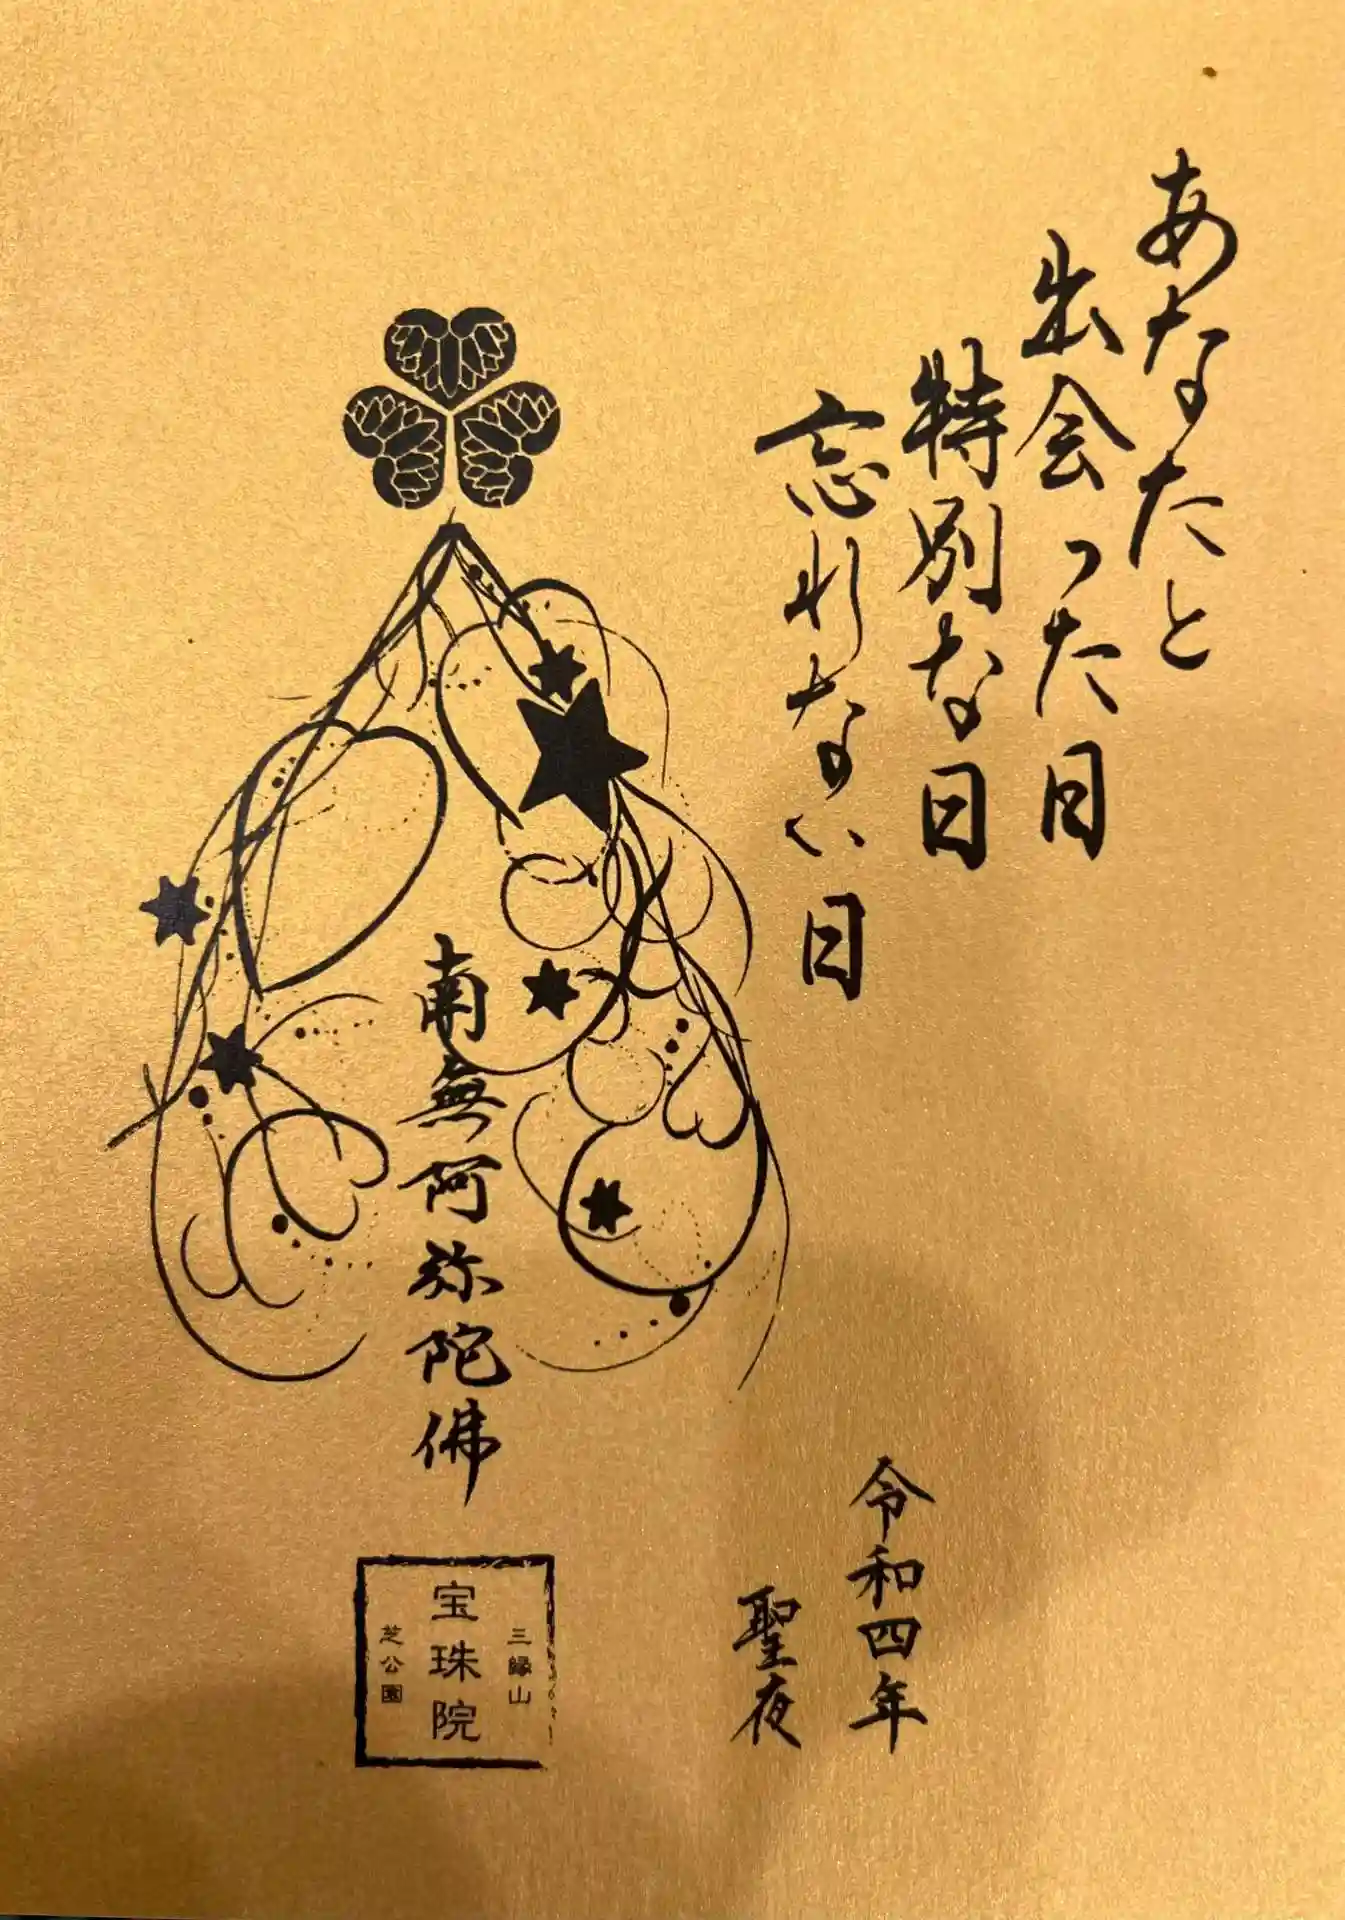 あなたと
出会った日
特別な日
忘れない日
令和四年
聖夜
南無阿弥陀佛
三縁山
宝珠院
芝公園